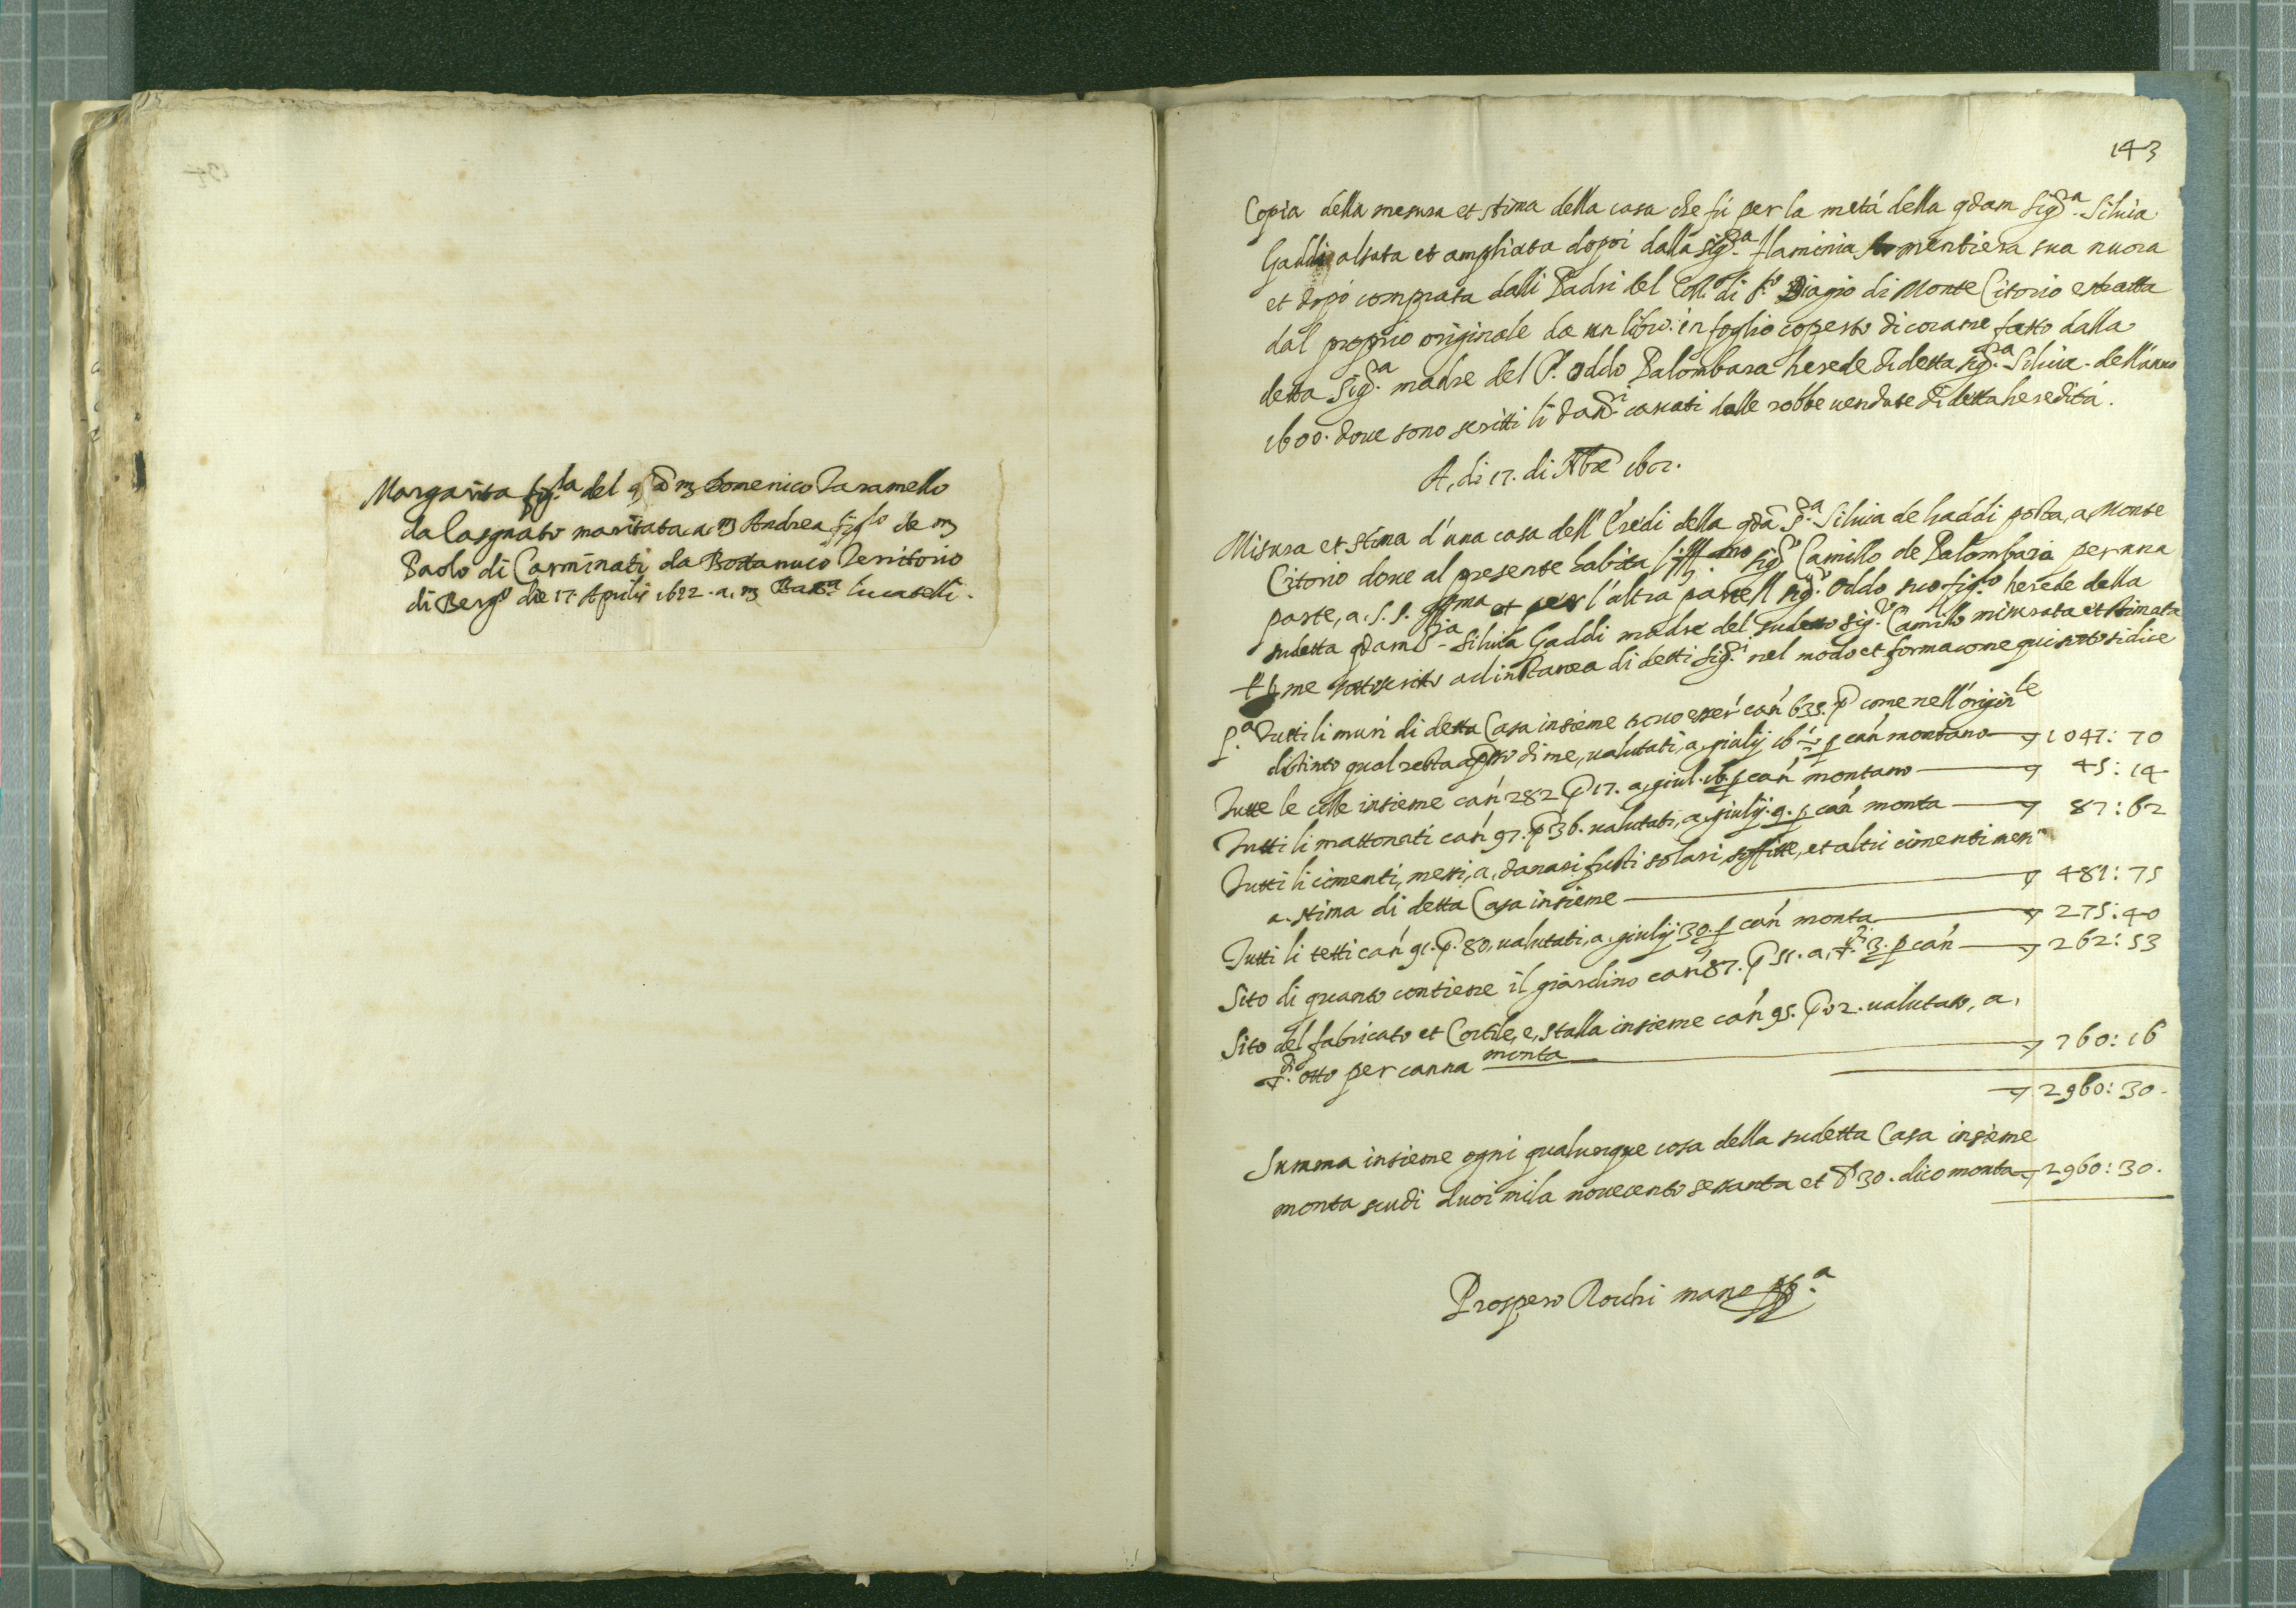 Margarita fig.la del qd m Domenico Taramello
da lasgnato maritata a m Andrea figlo de m
Paolo di Carminati da Bottanuco Territorio
di Bergo die 17 Aprilis 1622. a, m Batt.a Lucatelli.
143
Copia della mesura et stima della casa che fú per la metá della qdam Sigra. Silvia
Gaddi alzata et ampliata dopoi dalla Sigra. Flaminia mentiera sua nuora
et dopò comprata dalli Padri del Coll.o di S.to Biagio di Monte Citorio estratta
dal proprio originale da un libro in foglio coperto di corame fatto dalla
detta Sigra. madre del P. Oddo Palombara herede di detta Sigra. Silvia dell'anno
1600. dove sono scritti li danri cavati dalle robbe vendute di detta heredità.
A, di 17. di Xbre 1601.
Misura et stima d'una casa dell' Eredi della qdā S.ra Silvia de Gaddi posta, a, Monte
Citorio dove al presente habita l'Ill.mo Sigr. Camillo de Palombara per una
parte, a, S. S. Ill.ma et per l'altra parte Il sigr. Oddo suo figlo herede della
sudetta qdam S.ra Silvia Gaddi madre del sudetto sigr. Camillo misurata et stimata
p me sottoscritto ad instanza di detti Sigri. nel modo et forma come qui sotto si dice
P.a Tutti li muri di detta Casa insieme sono esser can 635. p come nell'origin.le
distinto qual resta apso di me, valutati, a, giulij 16 1/2 p can montano 1047: 70
Tutte le colle insieme can 282 p 17. a, giul. 16. p can montano 45: 14
Tutti li mattonati can 97. p 36. valutati, a, giulij. 9. p can monta 87: 62
Tutti li cimenti, messi, a, danari fusti solari, soffitte, et altri cimenti messi
a, stima di detta Casa insieme 481: 75
Tutti li tetti can 91. p. 80, valutati, a, giulij 30. p can monta 275: 40
Sito di quanto contiene il giardino can 87. p 51. a, 3. p can 262: 53
Sito del fabricato et Cortile, e, stalla insieme can 95. p 02. valutato, a,
otto per canna monta 760: 16
2960: 30.
Summa insieme ogni qualunque cosa della sudetta Casa insieme
monta scudi duoi mila novecento sessanta et 30. dico monta 2960: 30.
Prospero Rocchi mano pp.a